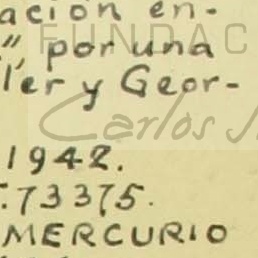 ación en-
", por una
ler y Geor-
1942.
:73375.
MERCURIO
FUNDAC
Carlos